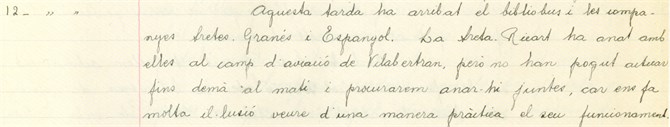 12 - " " Aquesta tarda ha arribat el bibliobus i les compa-
nyes Sretes. Granés i Espanyol. La Sreta. Ricart ha anat amb
elles al camp d'aviació de Vilabertran, però no han pogut actuar
fins demà al matí i procurarem anar-hi juntes, car ens fa
molta il·lusió veure d'una manera pràctica el seu funcionament